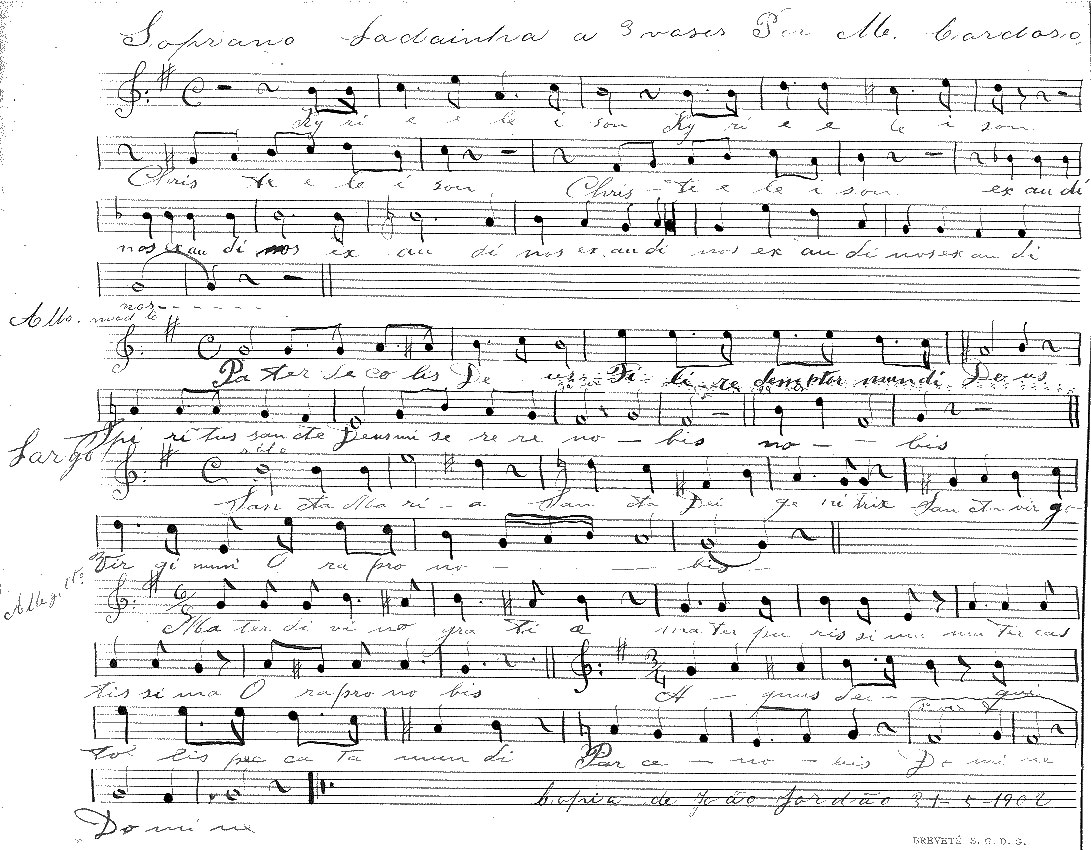 Soprano Ladainha a 3 vozes Por M. Cardoso
Ky ri e e le i son Ky ri e e le i son
Chris te e le i son Chris - te e le i son ex au di
nos ex au di nos ex au di nos ex au di nos ex au di nos ex au di
nos
Allo. mod to
Pa ter de co lis De us Fi li re demptor mundi De us
Spi ri tus sancte Deus mi se re re no - bis no - - bis
Largo
San cta Ma ri - a San cta Dei ge ni trix San cta vir go
Vir gi num O ra pro no - - bis
Alleg. tto
Ma ter di vi no gra ti a ma ter pu ris si ma ma ter cas
tis si ma O ra pro no bis A - gnus dei - qui
tol lis pec ca ta mun di Par ce - no - bis Do mi ne
Copia de João Jordão 31-5-1902
Do mi ne
BREVETÉ S. G. D. G.